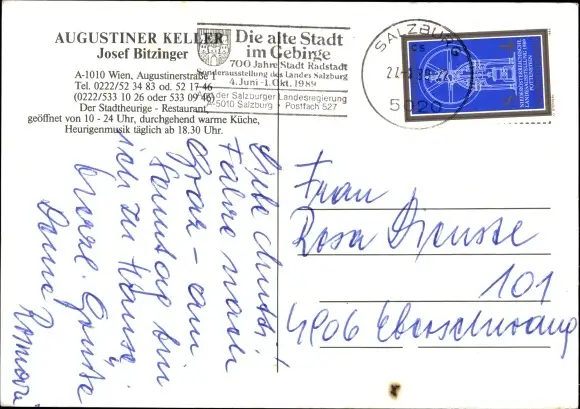 AUGUSTINER KELLER
Josef Bitzinger
A-1010 Wien, Augustinerstraße 1
Tel. 0222/52 34 83 od. 52 17 46
(0222/533 10 26 oder 533 09 46)
Der Stadtheurige - Restaurant,
geöffnet von 10 - 24 Uhr, durchgehend warme Küche,
Heurigenmusik täglich ab 18.30 Uhr.
Die alte Stadt
im Gebirge
700 Jahre Stadt Radstadt
Sonderausstellung des Landes Salzburg
4. Juni - 1. Okt. 1989
der Salzburger Landesregierung
5010 Salzburg • Postfach 527
SALZBURG
5020
Liebe Mutti!
Fahre nach
Graz - am
Sonntag bin
ich zu Hause.
herzl. Grüße
Deine
Frau
Rosa Dienste
101
4906 Eberschwang